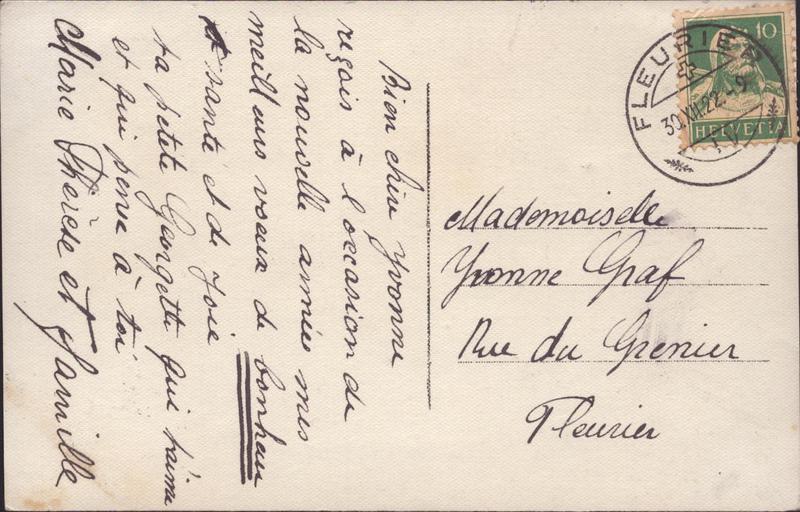 Bien chère Yvonne
reçois à l'occasion de
la nouvelle année mes
meilleurs voeux de bonheur
et santé et de Joie
ta petite Georgette qui t'aime
et qui pense à toi
Marie Thérèse et famille
FLEURIER
30.XII.22.-9
10
HELVETIA
Mademoiselle
Yvonne Graf
Rue du Grenier
Fleurier